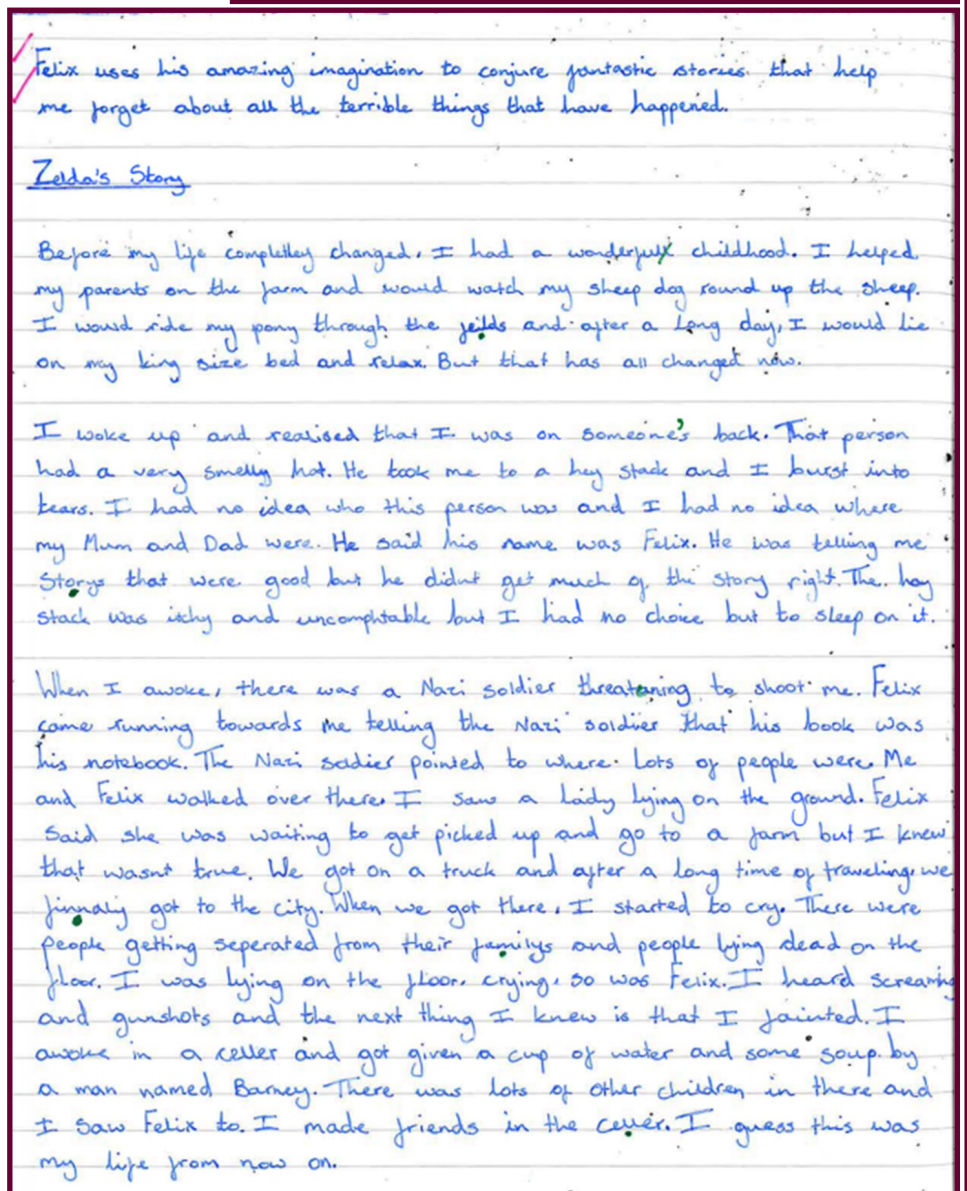 Felix uses his amazing imagination to conjure fantastic stories that help
me forget about all the terrible things that have happened.
Zelda's Story
Before my life completley changed, I had a wonderfull childhood. I helped
my parents on the farm and would watch my sheep dog round up the sheep.
I would ride my pony through the feilds and after a long day, I would lie
on my king size bed and relax. But that has all changed now.
I woke up and realised that I was on someone's back. That person
had a very smelly hat. He took me to a hey stack and I burst into
tears. I had no idea who this person was and I had no idea where
my Mum and Dad were. He said his name was Felix. He was telling me
Storys that were good but he didnt get much of the story right. The hay
stack was itchy and uncomphtable but I had no choice but to sleep on it.
When I awoke, there was a Nazi soldier threataning to shoot me. Felix
came running towards me telling the Nazi soldier that his book was
his notebook. The Nazi soldier pointed to where lots of people were. Me
and Felix walked over there. I saw a lady lying on the ground. Felix
Said she was waiting to get picked up and go to a farm but I knew
that wasnt true. We got on a truck and after a long time of traveling, we
finnaly got to the city. When we got there, I started to cry. There were
people getting seperated from their familys and people lying dead on the
floor. I was lying on the floor, crying, so was Felix. I heard screaming
and gunshots and the next thing I knew is that I fainted. I
awoke in a celler and got given a cup of water and some soup by
a man named Barney. There was lots of other children in there and
I saw Felix to. I made friends in the celler. I guess this was
my life from now on.